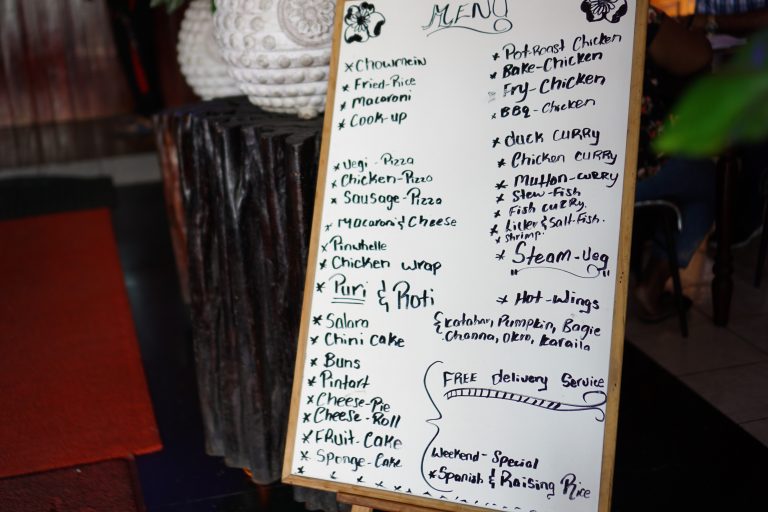 MENU
* Chowmein
* Fried-Rice
* Macaroni
* Cook-up
* Vegi-Pizza
* Chicken-Pizza
* Sausage-Pizza
* Macaroni & Cheese
* Pinwhelle
* Chicken wrap
* Puri & Roti
* Salara
* Chini cake
* Buns
* Pintart
* Cheese-Pie
* Cheese-Roll
* Fruit-Cake
* Sponge-Cake
* Pot-Roast Chicken
* Bake-Chicken
Fry-Chicken
* BBQ-Chicken
* duck curry
* Chicken curry
* Mutton-curry
* Stew-Fish
* Fish curry.
* Liver & Salt-Fish.
* Shrimp.
* Steam-Veg
* Hot-Wings
& katahar, Pumpkin, Bagie
Channa, Okro, Karaila
FREE delivery Service
Weekend-Special
* Spanish & Raising Rice